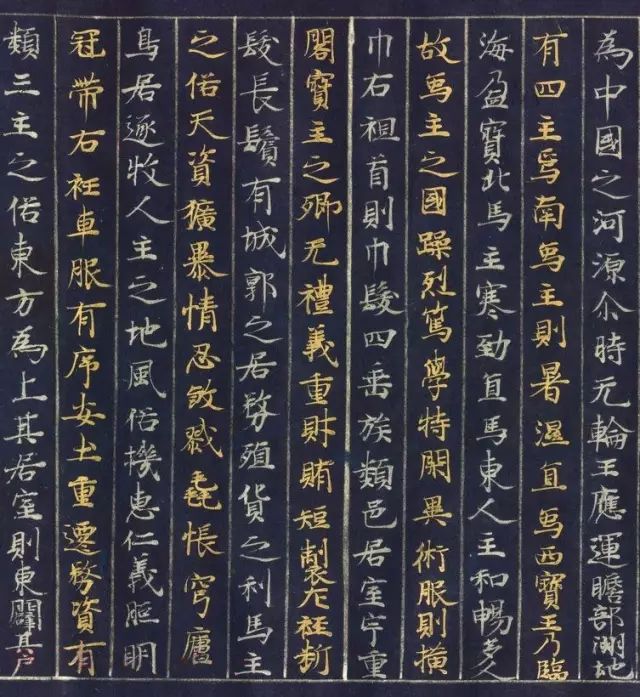 為中國之河源尒時无輪王應運瞻部洲地
有四主焉南象主則暑濕宜象西寶主乃臨
海盈寶北馬主寒勁宜馬東人主和暢多人
故象主之國躁烈篤學特閑異術服則横
巾右袒首則巾髻四垂族類邑居室宇重
閣寶主之鄉无禮義重財賄短製左衽断
髮長鬚有城郭之居務殖貨之利馬主
之俗天資獷暴情忍煞戮毳帳穹廬
鳥居逐牧人主之地風俗機惠仁義照明
冠帶右衽車服有序安土重遷務資有
類三主之俗東方為上其居室則東闢其戶